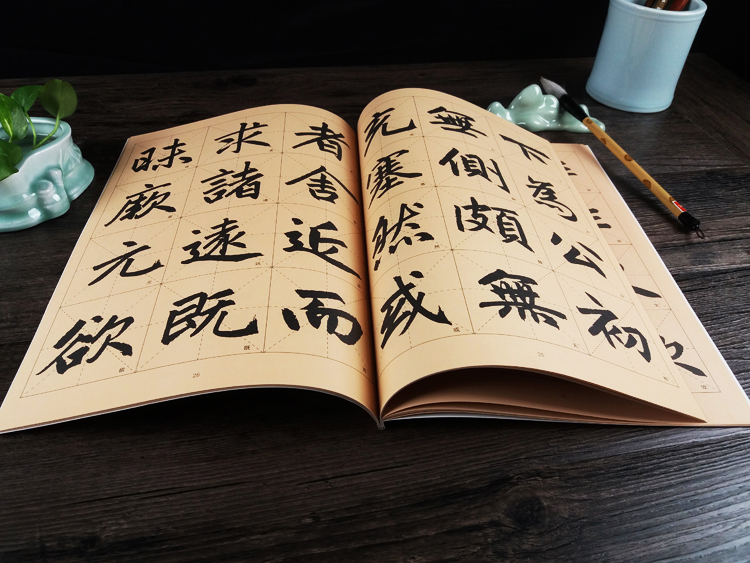 下為公初
無側頗無
充塞然或
25
者舍近而
求諸遠既
昧厥元欲
26